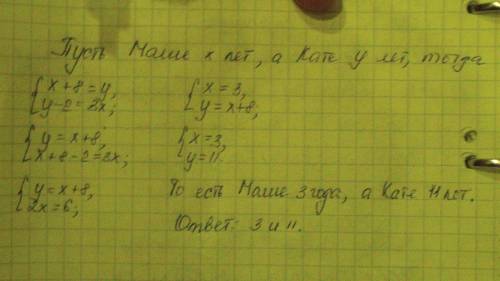 Пусть Маше x лет, а Кате y лет, тогда
{x+8=y,
y-2=3x;
{y=x+8,
x+8-2=3x;
{y=x+8,
2x=6;
{x=3,
y=x+8;
{x=3,
y=11.
То есть Маше 3 года, а Кате 11 лет.
Ответ: 3 и 11.